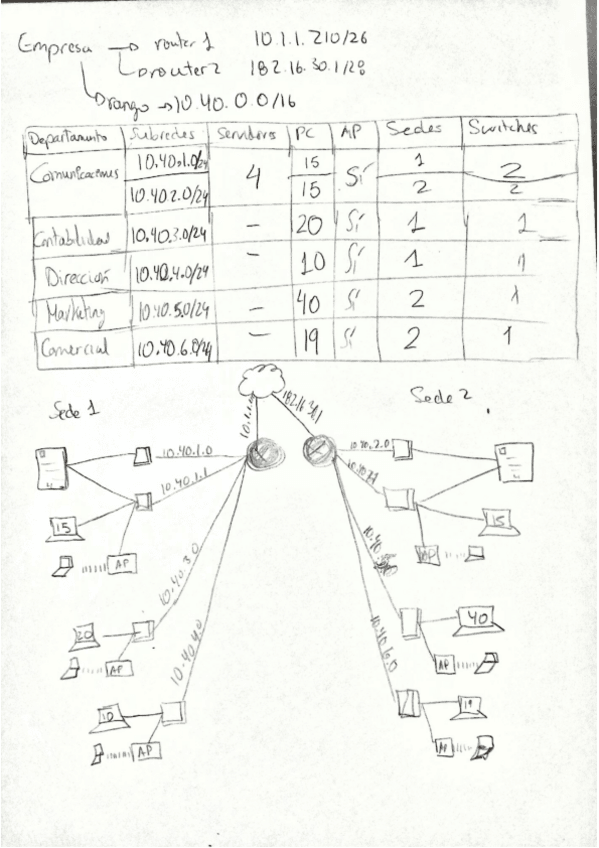 Empresa → router 1 10.1.1.210/26
→ router 2 182.16.30.1/28
→ rango → 10.40.0.0/16
Departamento Subredes Servidores PC AP Sedes Switches
Comunicaciones 10.40.1.0/24 4 15 Sí 1 2
10.40.2.0/24 15 2 2
Contabilidad 10.40.3.0/24 - 20 Sí 1 1
Dirección 10.40.4.0/24 - 10 Sí 1 1
Marketing 10.40.5.0/24 - 40 Sí 2 1
Comercial 10.40.6.0/24 - 19 Sí 2 1
Sede 1
Sede 2
182.16.30.1
10.40.1.0
10.40.1.1
15
AP
10.40.3.0
20
AP
10.40.4.0
10
AP
10.40.2.0
15
AP
10.40
40
AP
10.40.6.0
19
AP